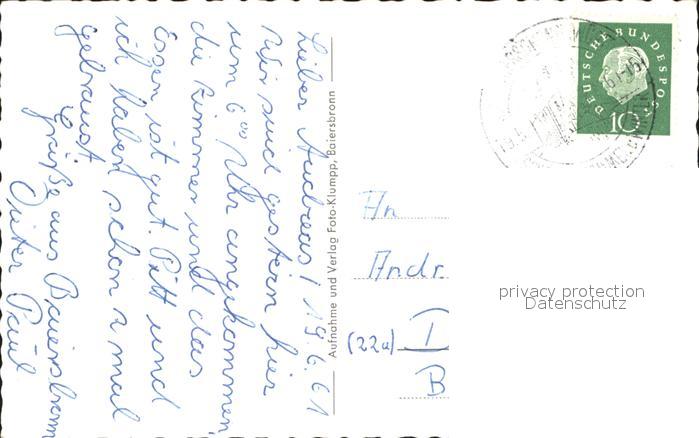 Lieber Andreas! 19.6.61
Wir sind gestern hier
um 6⁰⁰ Uhr angekommen,
die Zimmer und das
Essen ist gut. Pitt und
ich haben schon 2 mal
gebraust.
Grüße aus Baiersbronn
Dieter Paul
Aufnahme und Verlag Foto-Klumpp, Baiersbronn
DEUTSCHE BUNDESPOST
10
An
Andr.
(22a) I
B
privacy protection
Datenschutz